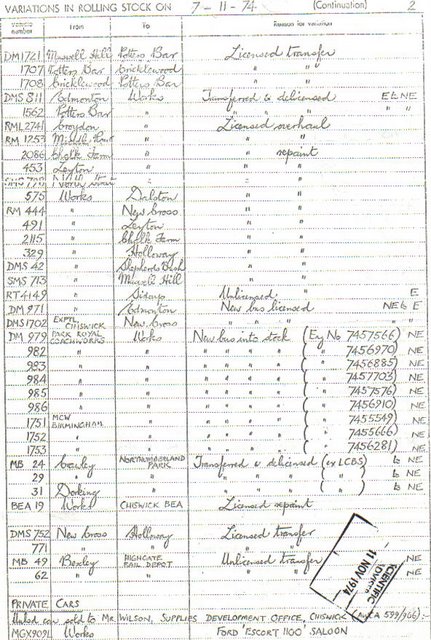 VARIATIONS IN ROLLING STOCK ON 7-11-74 (Continuation) 2
number From To Reason for variation
DM 1721 Muswell Hill Potters Bar Licensed transfer
1707 Potters Bar Cricklewood " "
1708 Cricklewood Potters Bar " "
DMS 811 Edmonton Works Transferred & delicensed E to NE
1562 Potters Bar " " " " " "
RML 2741 Croydon " Licensed overhaul
RM 1253 " " "
2086 Chalk Farm " " repaint
453 Leyton " " "
575 Works Dalston " "
RM 444 " New Cross " "
491 " Leyton " "
2115 " Chalk Farm " "
329 " Holloway " "
DMS 42 " Shepherds Bush " "
SMS 713 " Muswell Hill " "
RT 4149 " Sidcup Unlicensed " E
DM 971 " Edmonton New bus licensed NE to E
DMS 1702 EXPTL. CHISWICK New Cross " " "
DM 979 PARK ROYAL COACHWORKS Works New bus into stock (Eng No 7457566) NE
982 " " " " " " ( " " 7456970) NE
983 " " " " " " ( " " 7456885) NE
984 " " " " " " ( " " 7457703) NE
985 " " " " " " ( " " 7457576) NE
986 " " " " " " ( " " 7456910) NE
1751 MCW BIRMINGHAM " " " " " ( " " 7455549) NE
1752 " " " " " " ( " " 7455666) NE
1753 " " " " " " ( " " 7456281) NE
MB 24 Crawley NORTHUMBERLAND PARK Transferred & delicensed (ex LCBS) to NE
29 " " " " ( " ) to NE
31 Dorking " " " ( " ) to NE
BEA 19 Works CHISWICK BEA Licensed repaint
DMS 752 New Cross Holloway Licensed transfer
771 " " " "
MB 49 Bexley HIGHGATE RAIL DEPOT Unlicensed transfer NE
62 " " " " NE
SCIENTIFIC ADVISER
11 NOV 1974
PRIVATE CARS
Under car sold to MR. WILSON, SUPPLIES DEVELOPMENT OFFICE, CHISWICK 599/966) :-
MGX909L Works FORD 'ESCORT 1100' SALOON